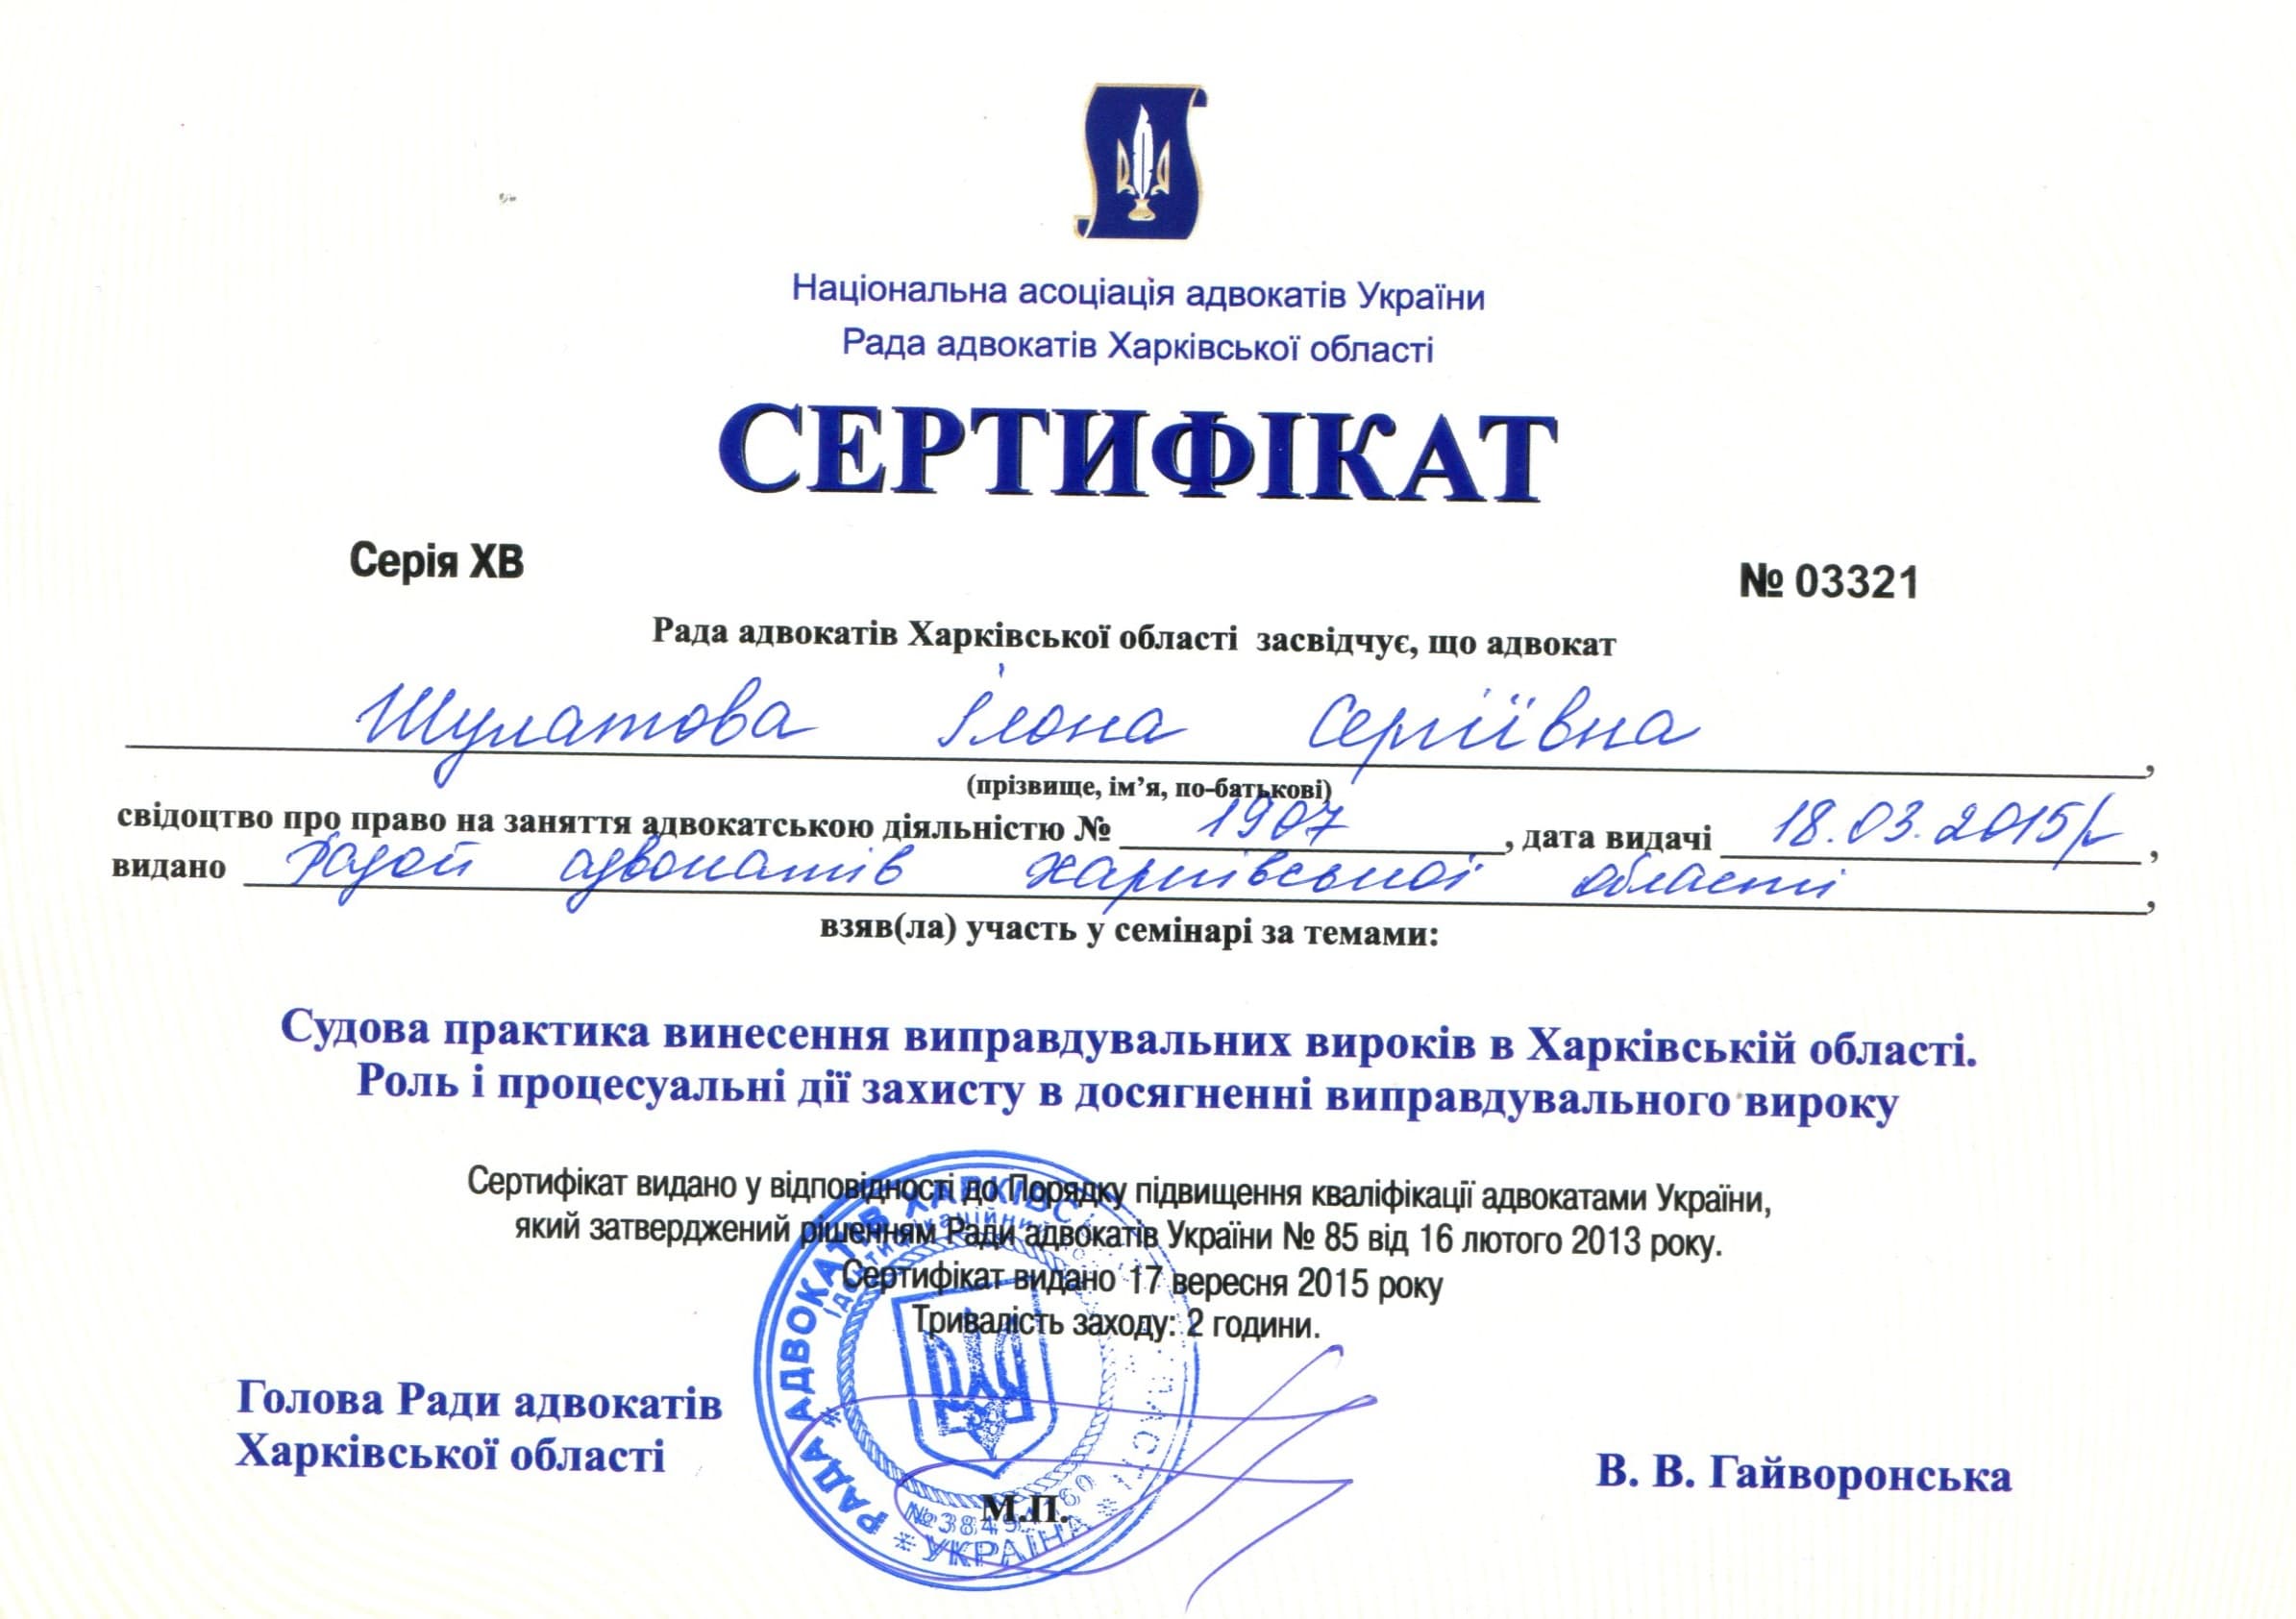 Національна асоціація адвокатів України
Рада адвокатів Харківської області
СЕРТИФІКАТ
Серія ХВ № 03321
Рада адвокатів Харківської області засвідчує, що адвокат
Шулатова Ілона Сергіївна ,
(прізвище, ім’я, по-батькові)
свідоцтво про право на заняття адвокатською діяльністю № 1907 , дата видачі 18.03.2015р ,
видано Радой адвокатів Харківської області ,
взяв(ла) участь у семінарі за темами:
Судова практика винесення виправдувальних вироків в Харківській області.
Роль і процесуальні дії захисту в досягненні виправдувального вироку
Сертифікат видано у відповідності до Порядку підвищення кваліфікації адвокатами України,
який затверджений рішенням Ради адвокатів України № 85 від 16 лютого 2013 року.
Сертифікат видано 17 вересня 2015 року
Тривалість заходу: 2 години.
Голова Ради адвокатів
Харківської області
В. В. Гайворонська
М.П.
РАДА АДВОКАТІВ
УКРАЇНА